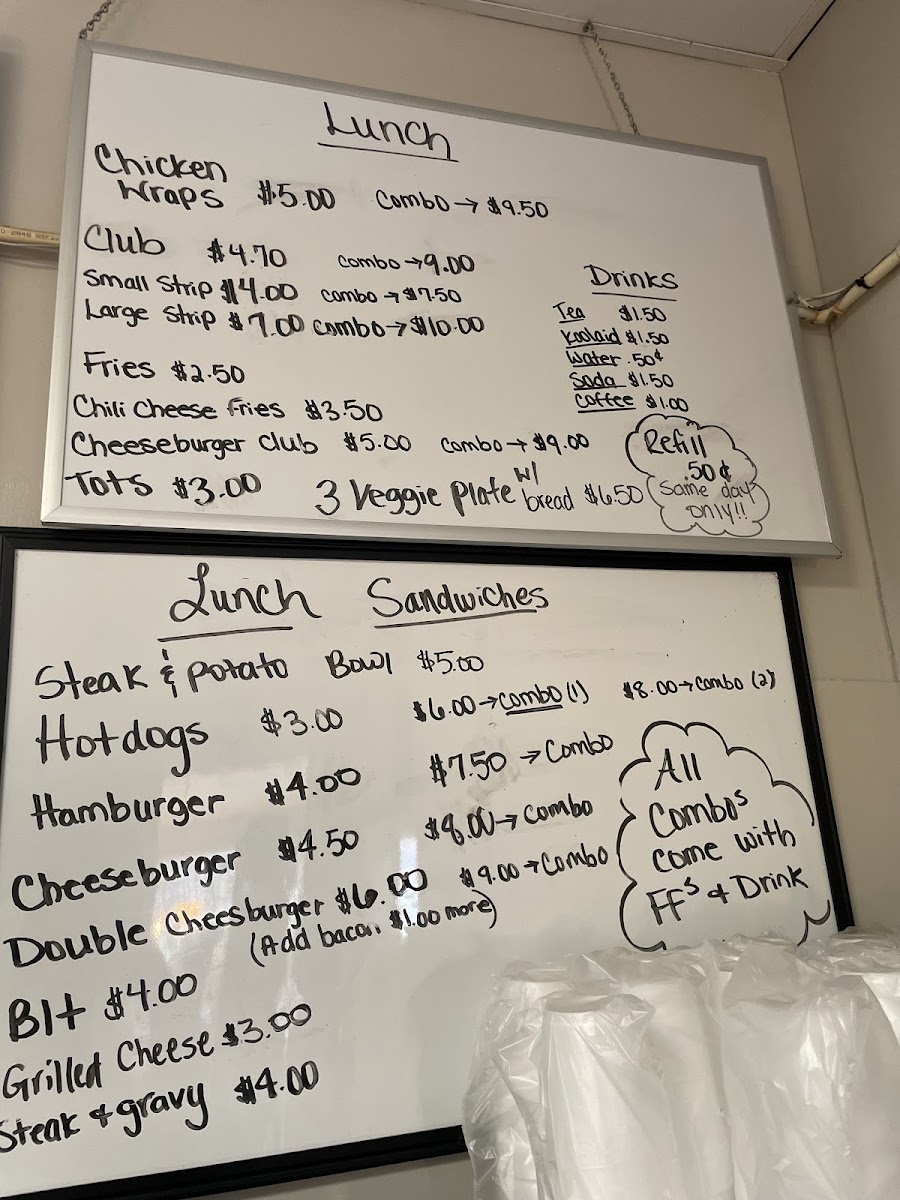 Lunch
Chicken
Wraps $5.00 Combo → $9.50
Club $4.70 combo → 9.00
Small Strip $4.00 combo → $7.50
Large Strip $7.00 combo → $10.00
Fries $2.50
Chili Cheese Fries $3.50
Cheeseburger Club $5.00 Combo → $9.00
Tots $3.00 3 Veggie Plate w/ bread $6.50
Drinks
Tea $1.50
Koolaid $1.50
Water .50¢
Soda $1.50
Coffee $1.00
Refill
.50¢
Same day
only!!
Lunch Sandwiches
Steak & Potato Bowl $5.00
Hotdogs $3.00 $6.00 → combo (1) $8.00 → combo (2)
Hamburger $4.00 $7.50 → Combo
Cheeseburger $4.50 $8.00 → Combo
Double Cheesburger $6.00 $9.00 → Combo
(Add bacon $1.00 more)
Blt $4.00
Grilled Cheese $3.00
Steak & gravy $4.00
All
Combos
come with
FFs & Drink